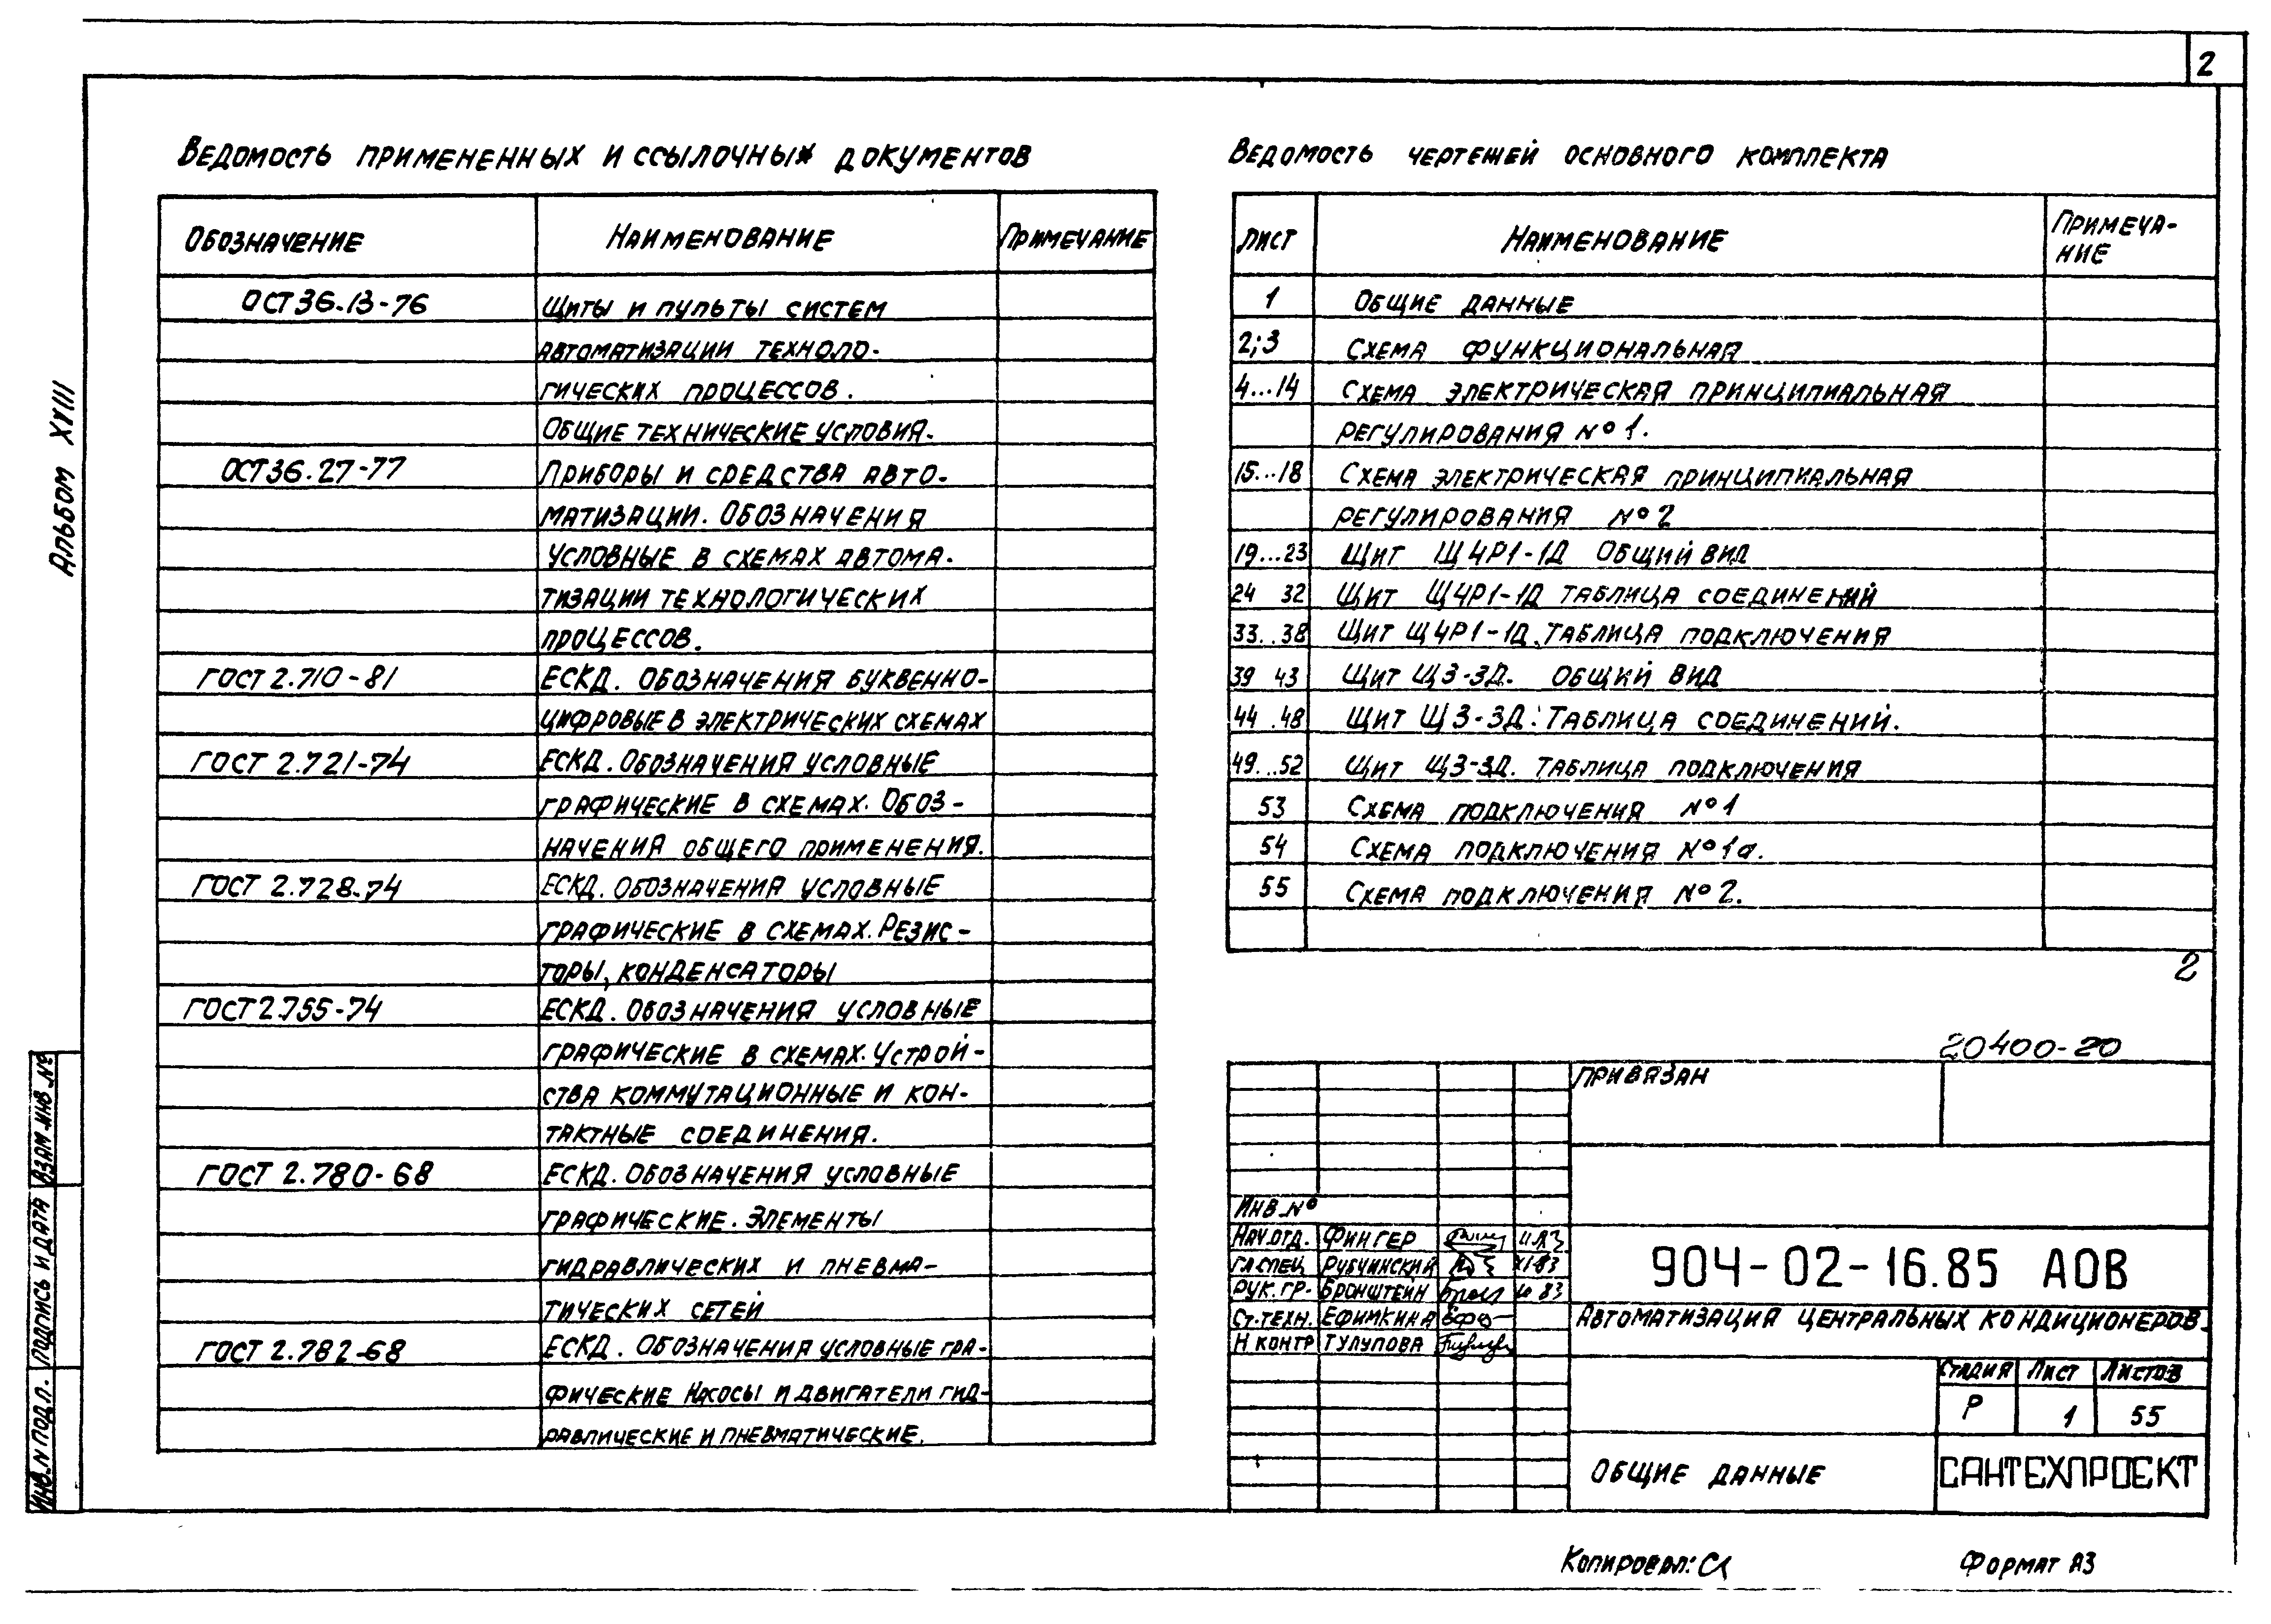 2
Альбом XVIII
Ведомость примененных и ссылочных документов
Обозначение Наименование Примечание
ОСТ 36.13-76 Щиты и пульты систем
автоматизации техноло-
гических процессов.
Общие технические условия.
ОСТ 36.27-77 Приборы и средства авто-
матизации. Обозначения
условные в схемах автома-
тизации технологических
процессов.
ГОСТ 2.710-81 ЕСКД. Обозначения буквенно-
цифровые в электрических схемах
ГОСТ 2.721-74 ЕСКД. Обозначения условные
графические в схемах. Обоз-
начения общего применения.
ГОСТ 2.728-74 ЕСКД. Обозначения условные
графические в схемах. Резис-
торы, конденсаторы
ГОСТ 2.755-74 ЕСКД. Обозначения условные
графические в схемах. Устрой-
ства коммутационные и кон-
тактные соединения.
ГОСТ 2.780-68 ЕСКД. Обозначения условные
графические. Элементы
гидравлических и пневма-
тических сетей
ГОСТ 2.782-68 ЕСКД. Обозначения условные гра-
фические Насосы и двигатели гид-
равлические и пневматические.
Ведомость чертежей основного комплекта
Лист Наименование Примеча-
ние
1 Общие данные
2;3 Схема функциональная
4...14 Схема электрическая принципиальная
регулирования №1.
15...18 Схема электрическая принципиальная
регулирования №2
19...23 Щит Щ4Р1-1Д Общий вид
24 32 Щит Щ4Р1-1Д таблица соединений
33..38 Щит Щ4Р1-1Д. Таблица подключения
39 43 Щит Щ3-3Д. Общий вид
44 .48 Щит Щ3-3Д. Таблица соединений.
49...52 Щит Щ3-3Д. таблица подключения
53 Схема подключения №1
54 Схема подключения №1а.
55 Схема подключения №2.
2
20400-20
Привязан
Инв.№
Нач.отд. Фингер 11.83
Гл спец Рубчинский XI-83
Рук.гр. Бронштейн 83
Ст.техн. Ефимкина
Н контр Тулупова
904-02-16.85 АОВ
Автоматизация центральных кондиционеров.
Стадия Лист Листов
Р 1 55
Общие данные
САНТЕХПРОЕКТ
Взам.инв.№
Подпись и дата
Инв.№ подл.
Копировал:
Формат А3